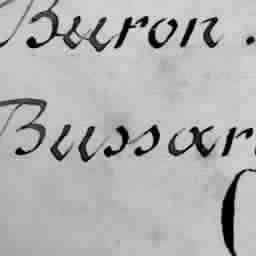 Buron .
Bussar